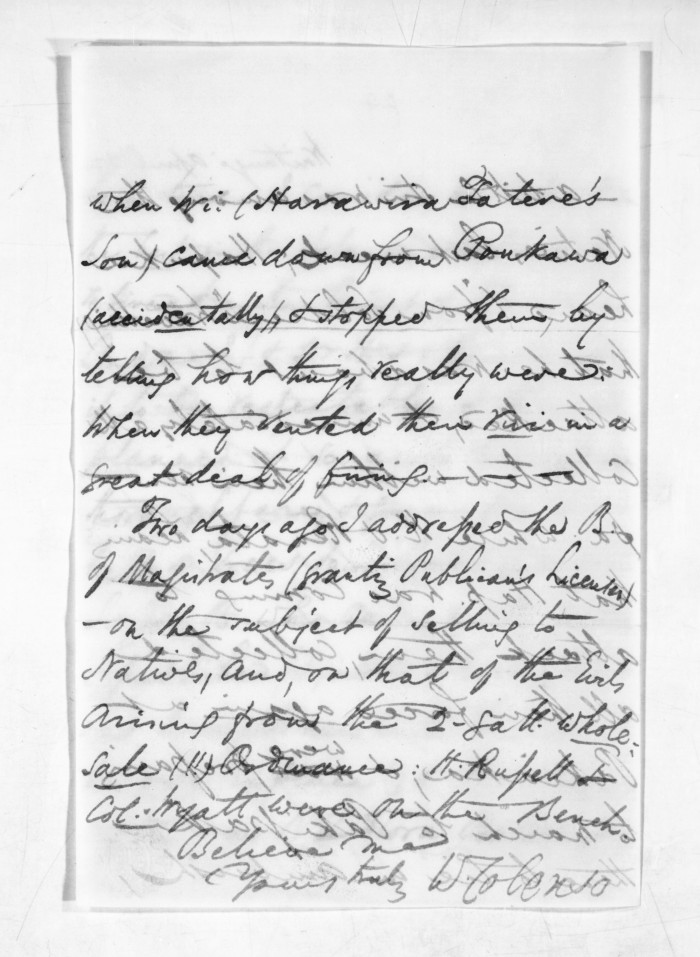 when Wi. (Harawira Tatere's
Son) came down from Poukawa
(accidentally), & stopped them, by
telling how things really were.
When they vented their riri in a
great deal of firing. — — —
Two days ago I addressed the B.
of Magistrates (granting Publican's Licenses)
– on the subject of selling to
Natives, And, on that of the Evils
Arising from the 2-gall. Whole-
sale (!!) Ordinance: H. Russell &
Col. Wyatt were on the Bench.
Believe me
Yours truly W. Colenso